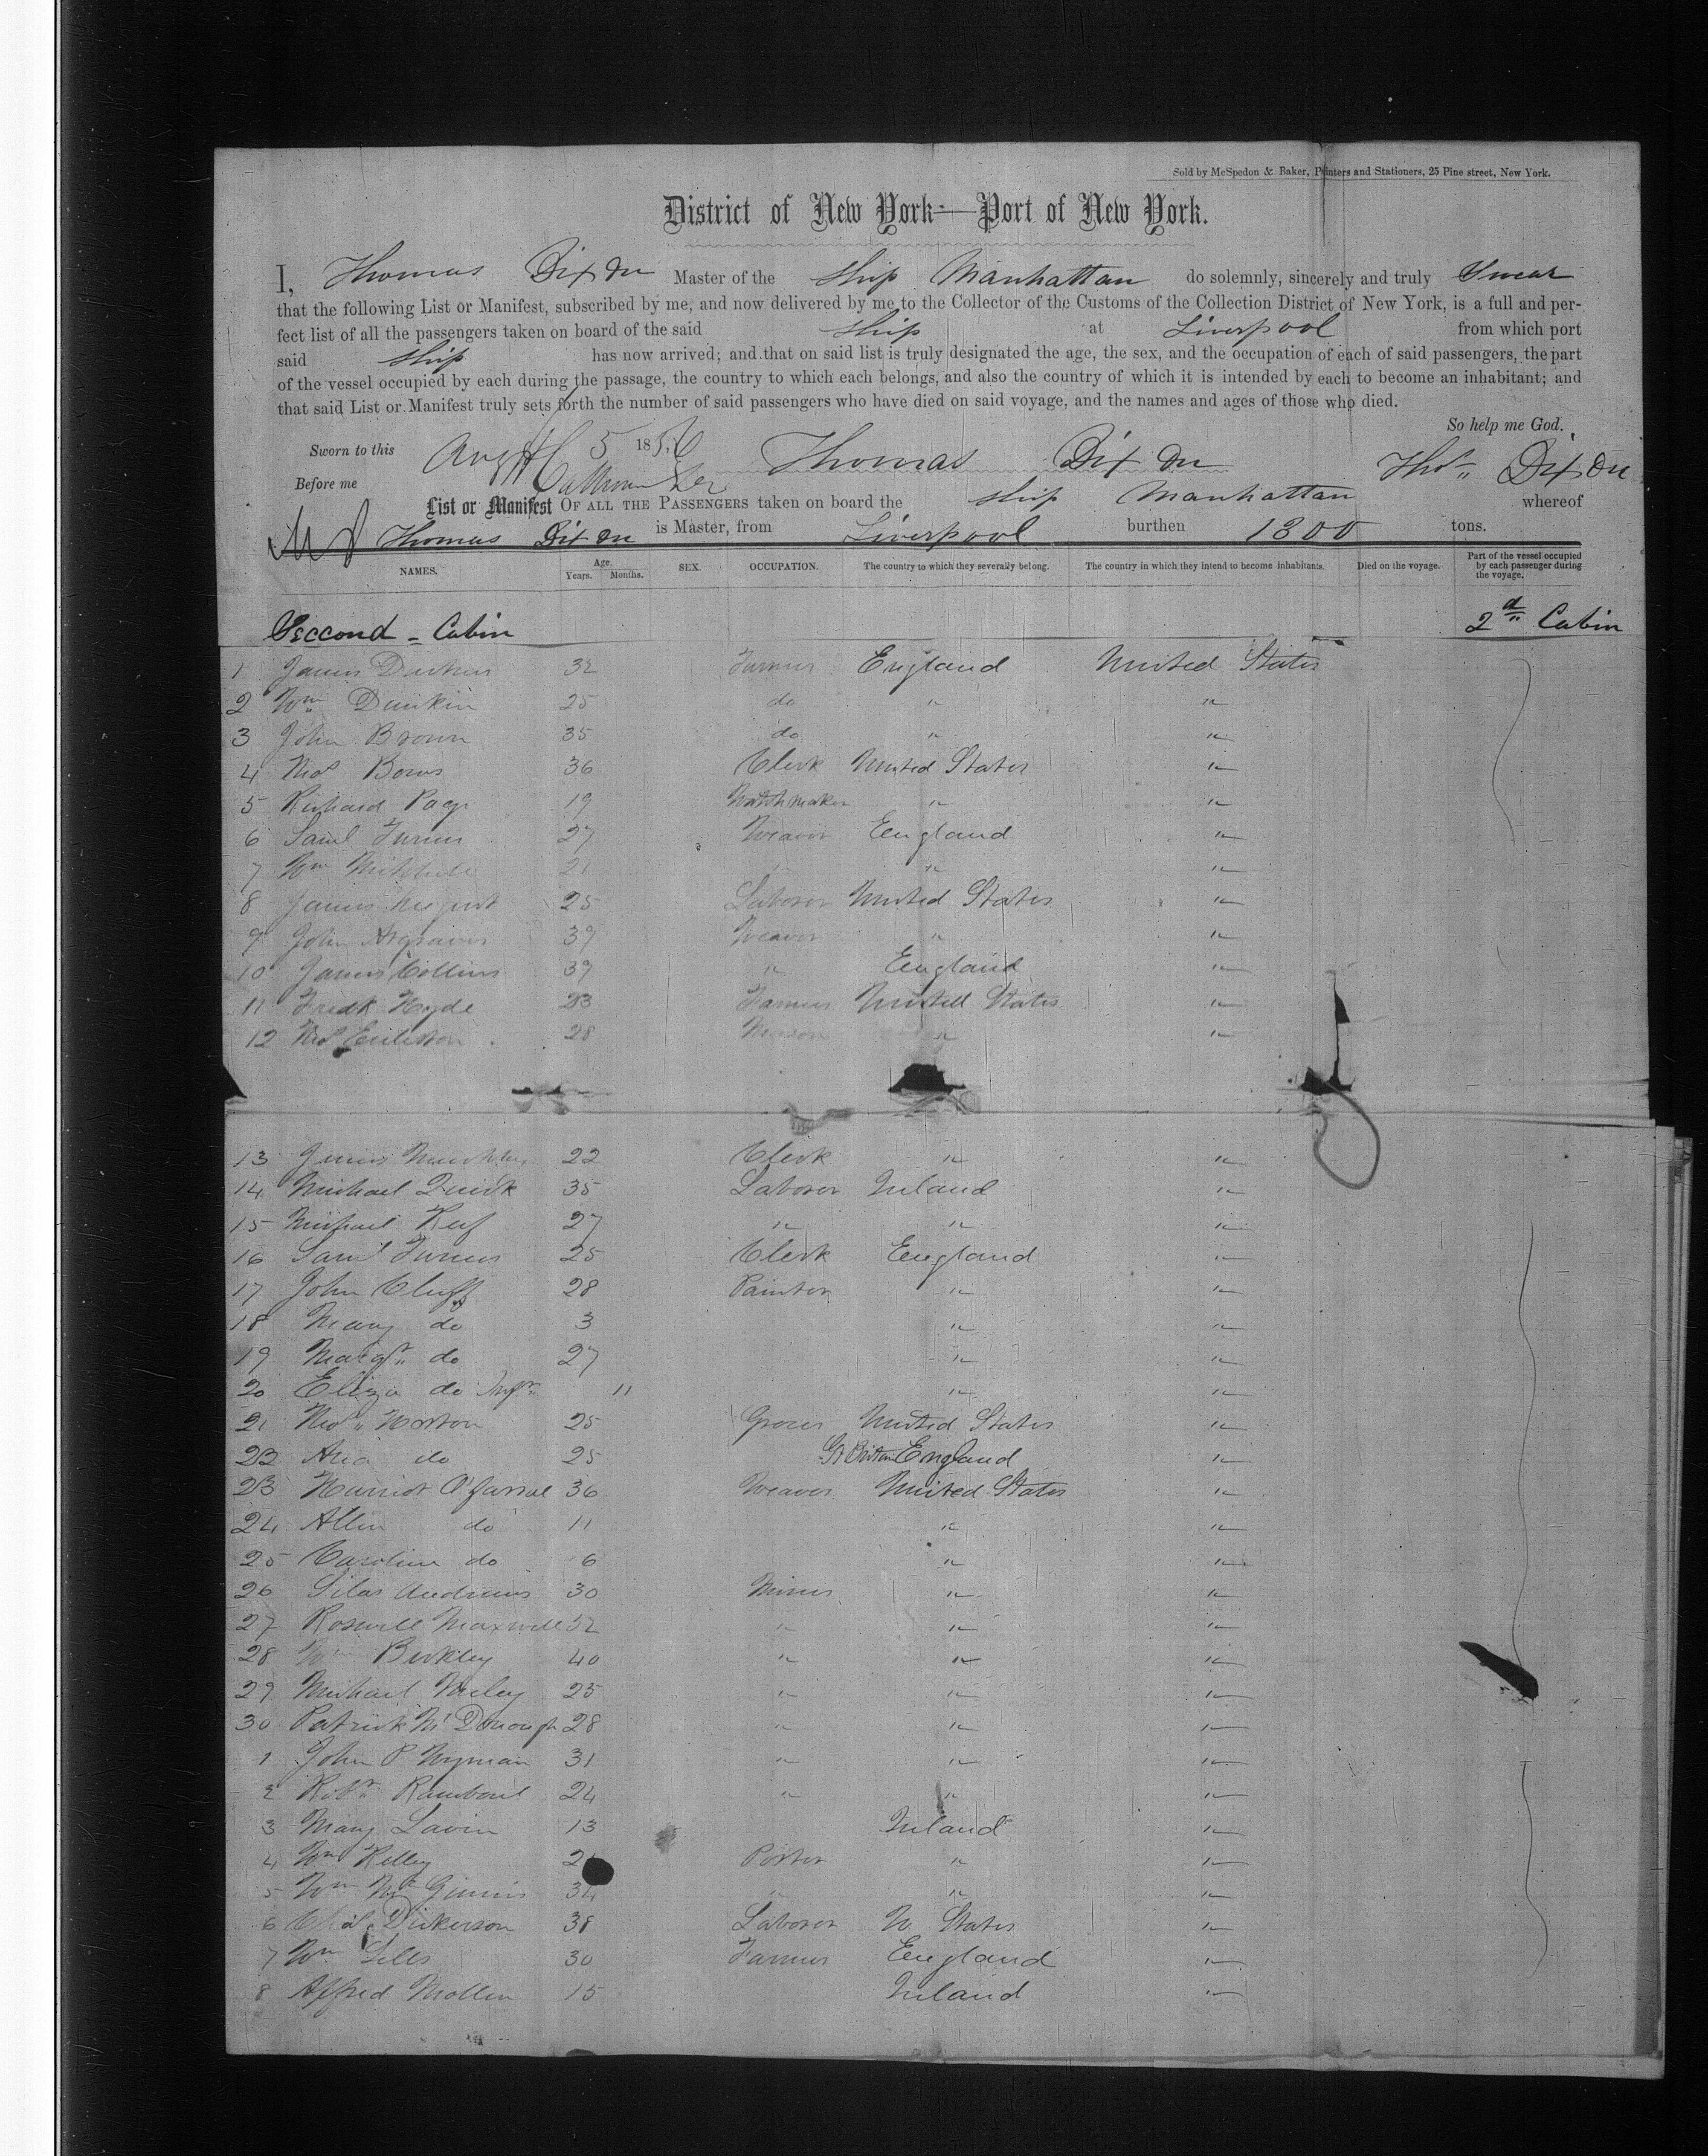 Sold by McSpedon & Baker, Printers and Stationers, 25 Pine street, New York.
District of New York—Port of New York.
I, Thomas Dixon Master of the Ship Manhattan do solemnly, sincerely and truly Swear
that the following List or Manifest, subscribed by me, and now delivered by me to the Collector of the Customs of the Collection District of New York, is a full and per-
fect list of all the passengers taken on board of the said Ship at Liverpool from which port
said Ship has now arrived; and that on said list is truly designated the age, the sex, and the occupation of each of said passengers, the part
of the vessel occupied by each during the passage, the country to which each belongs, and also the country of which it is intended by each to become an inhabitant; and
that said List or Manifest truly sets forth the number of said passengers who have died on said voyage, and the names and ages of those who died.
So help me God.
Sworn to this Augt 5 1856 Thomas Dixon Thos Dixon
Before me
List or Manifest OF ALL THE PASSENGERS taken on board the Ship Manhattan whereof
Thomas Dixon is Master, from Liverpool burthen 1300 tons.
NAMES. Age. Years. Months. SEX. OCCUPATION. The country to which they severally belong. The country in which they intend to become inhabitants. Died on the voyage. Part of the vessel occupied by each passenger during the voyage.
Seccond - Cabin 2d Cabin
1 James 32 Farmer England United States
2 Wm Dunkin 25 do " "
3 John Brown 35 do " "
4 36 Clerk United States "
5 Richard Page 19 Watchmaker " "
6 Saml Turner 27 Weaver England "
7 Wm Mitchell 21 " " "
8 James 25 Laborer United States "
9 John 39 Weaver " "
10 James Collins 39 " England "
11 Fredk Hyde 23 Farmer United States "
12 28 Mason " "
13 James 22 Clerk " "
14 Michael Quirk 35 Laborer Ireland "
15 Michael 27 " " "
16 Saml Turner 25 Clerk England "
17 John Cluff 28 Painter " "
18 Mary do 3 " "
19 Margt do 27 " "
20 Eliza do Inft 11 " "
21 Horton 25 Grocer United States "
22 do 25 Gt Britain England "
23 Harriot O'Farral 36 Weaver United States "
24 Allen do 11 " "
25 Caroline do 6 " "
26 Silas Andrews 30 Miner " "
27 Roswell Maxwell 52 " " "
28 Wm Berkley 40 " " "
29 Michael 25 " " "
30 Patrick McDonough 28 " " "
1 John P Wyman 31 " " "
2 Robt 24 " " "
3 Mary Lavin 13 Ireland "
4 Wm Kelley Porter " "
5 Wm McGinnis 34 " " "
6 Chas Dickerson 38 Laborer U States "
7 Wm 30 Farmer England "
8 Alfred 15 Ireland "